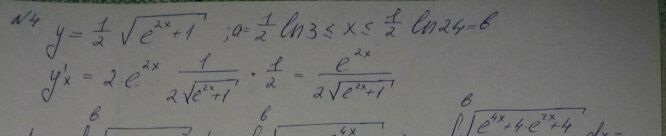 №4 y = 1/2 √(e^(2x)+1) ; a = 1/2 ln3 ≤ x ≤ 1/2 ln24 = b
y'x = 2e^(2x) · 1/(2√(e^(2x)+1)) · 1/2 = e^(2x)/(2√(e^(2x)+1))
b b b √(e^(4x)+4·e^(2x)+4